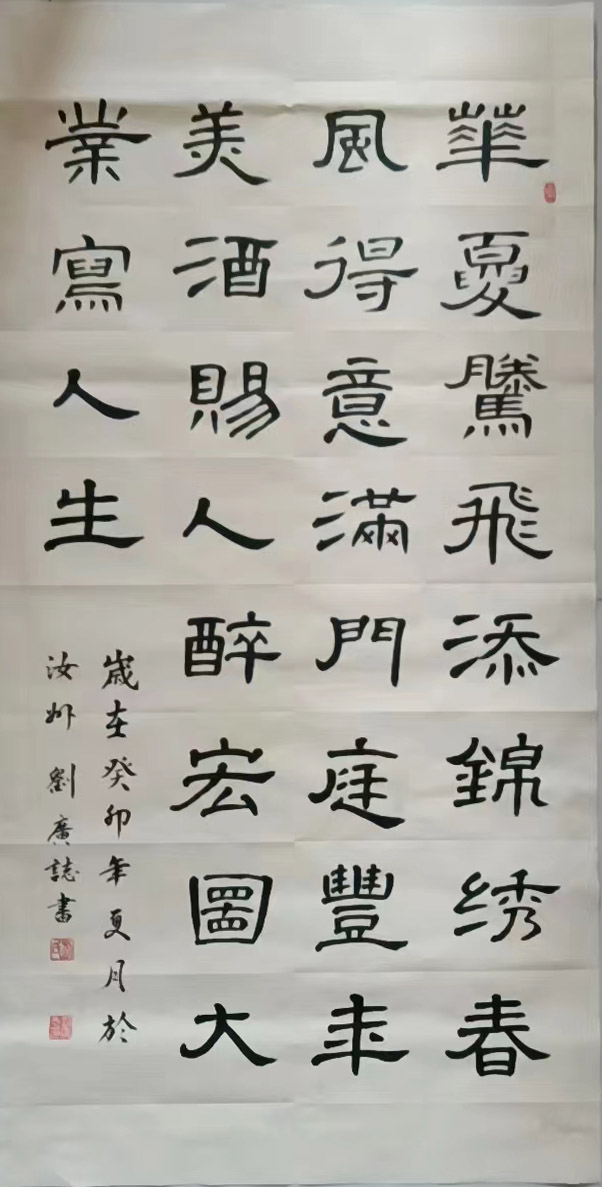 華夏騰飛添錦绣春
風得意滿門庭豐年
美酒賜人醉宏圖大
業寫人生
歲在癸卯年夏月於
汝州劉廣誌書